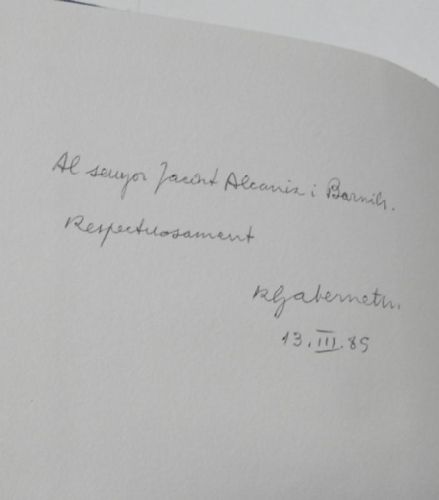 Al senyor Jacint Alcaniz i Barnils.
Respectuosament
RGabernet
13.III.89